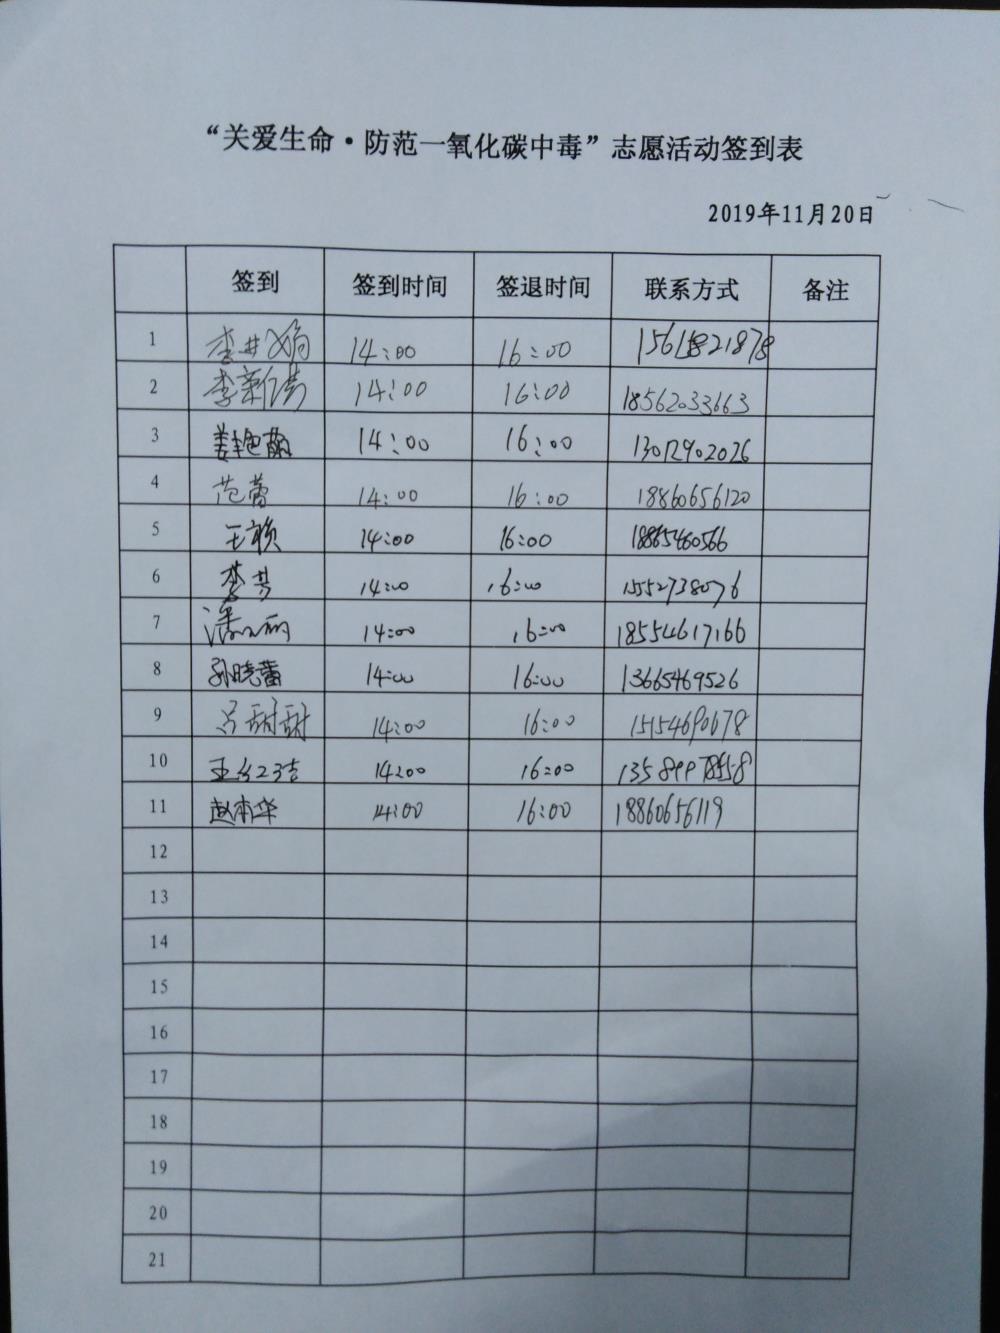 “关爱生命·防范一氧化碳中毒”志愿活动签到表
2019年11月20日
签到 签到时间 签退时间 联系方式 备注
1 李井娟 14:00 16:00
2 李新倩 14:00 16:00 18562033663
3 姜艳丽 14:00 16:00 13012902026
4 范蕾 14:00 16:00 18860656120
5 王颖 14:00 16:00 18865460566
6 李芳 14:00 16:00 15527738076
7 潘 丽 14:00 16:00 18554617166
8 孙晓蕾 14:00 16:00 13665469526
9 吕甜甜 14:00 16:00 15154690678
10 王红洁 14:00 16:00
11 赵本华 14:00 16:00 18860656119
12
13
14
15
16
17
18
19
20
21